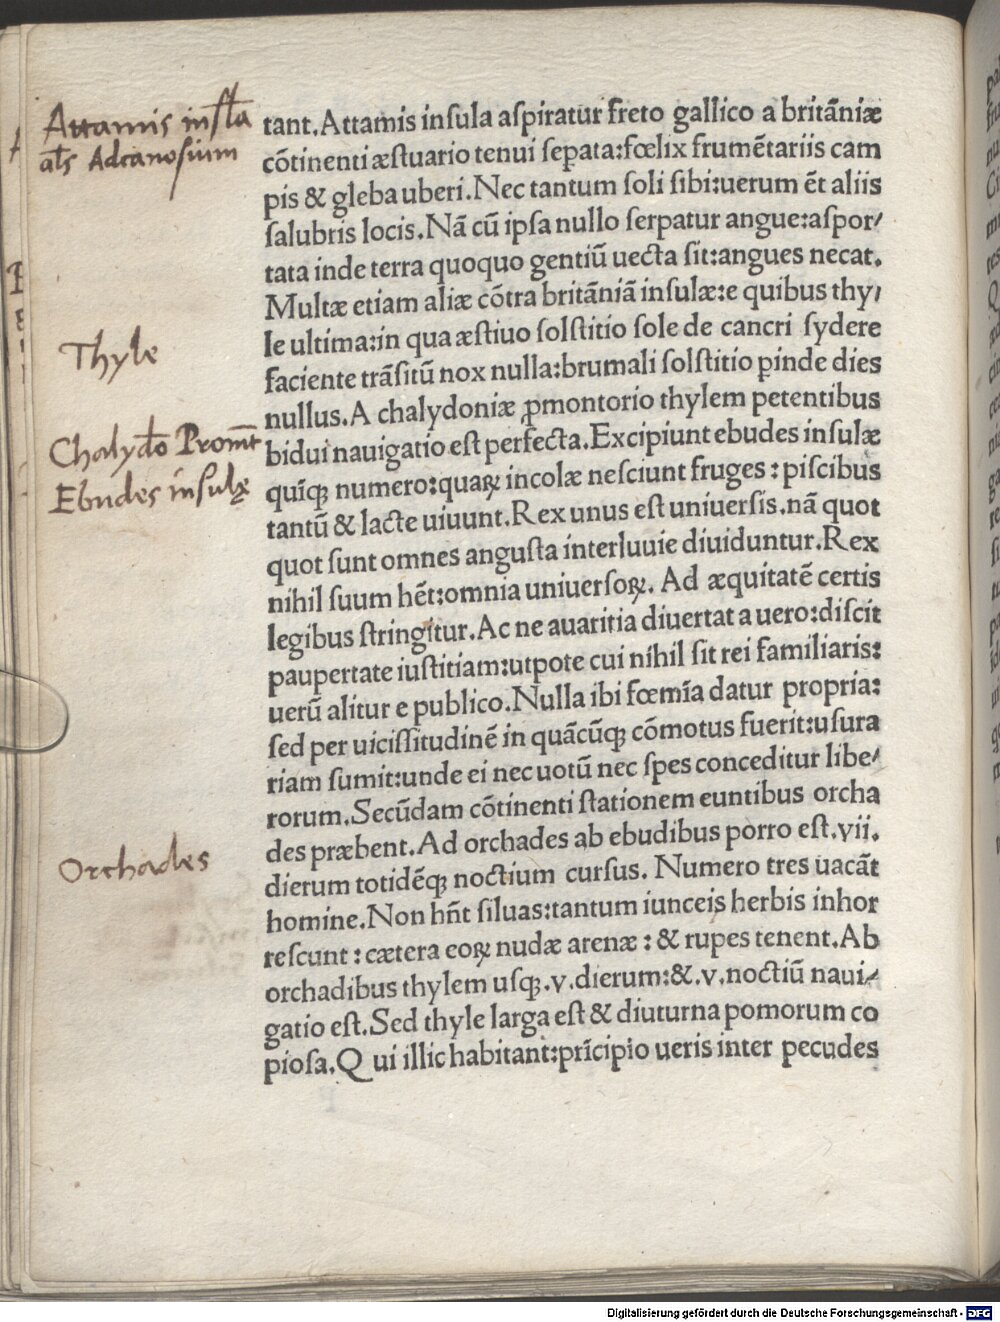 Attamis insła
als Adcanosium
tant.Attamis inſula aſpiratur freto gallico a britāniæ
cōtinenti æſtuario tenui ſepata:fœlix frumētariis cam
pis & gleba uberi.Nec tantum ſoli ſibi:uerum ēt aliis
ſalubris locis.Nā cū ipſa nullo ſerpatur angue:aſpor⸗
tata inde terra quoquo gentiū uecta ſit:angues necat.
Multæ etiam aliæ cōtra britāniā inſulæ:e quibus thy⸗
le ultima:in qua æſtiuo ſolſtitio ſole de cancri ſydere
Thyle
faciente trāſitū nox nulla:brumali ſolſtitio ꝑinde dies
nullus.A chalydoniæ ꝓmontorio thylem petentibus
Chalydo Promt
bidui nauigatio eſt perfecta.Excipiunt ebudes inſulæ
Ebudes insulę
quīqꝫ numero:quaꝝ incolæ neſciunt fruges : piſcibus
tantū & lacte uiuunt.Rex unus eſt uniuerſis.nā quot
quot ſunt omnes anguſta interluuie diuiduntur.Rex
nihil ſuum hēt:omnia uniuerſoꝝ. Ad æquitatē certis
legibus ſtringitur.Ac ne auaritia diuertat a uero:diſcit
paupertate iuſtitiam:utpote cui nihil ſit rei familiaris:
uerū alitur e publico.Nulla ibi fœmīa datur propria:
ſed per uiciſſitudinē in quācūqꝫ cōmotus fuerit:uſura
riam ſumit:unde ei nec uotū nec ſpes conceditur libe⸗
rorum.Secūdam cōtinenti ſtationem euntibus orcha
des præbent.Ad orchades ab ebudibus porro eſt.vii.
Orchades
dierum totidēqꝫ noctium curſus. Numero tres uacāt
homine.Non hn̄t ſiluas:tantum iunceis herbis inhor
reſcunt : cætera eoꝝ nudæ arenæ : & rupes tenent.Ab
orchadibus thylem uſqꝫ.v.dierum:&.v.noctiū naui⸗
gatio eſt.Sed thyle larga eſt & diuturna pomorum co
pioſa.Qui illic habitant:prīcipio ueris inter pecudes
Digitalisierung gefördert durch die Deutsche Forschungsgemeinschaft - DFG